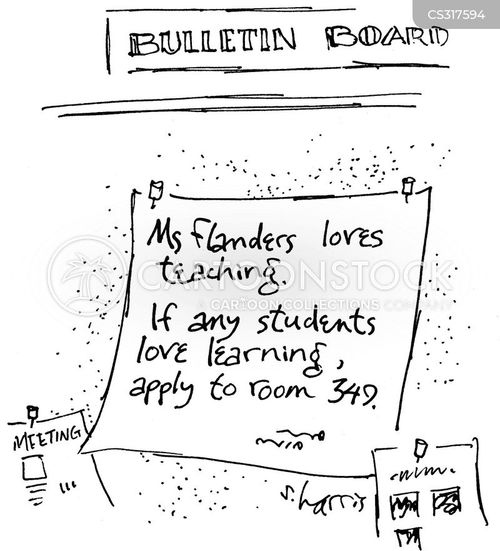 CS317594
BULLETIN BOARD
Ms Flanders loves
teaching.
If any students
love learning,
apply to room 349.
MEETING
S. harris
CARTOONSTOCK
A CARTOON COLLECTIONS COMPANY